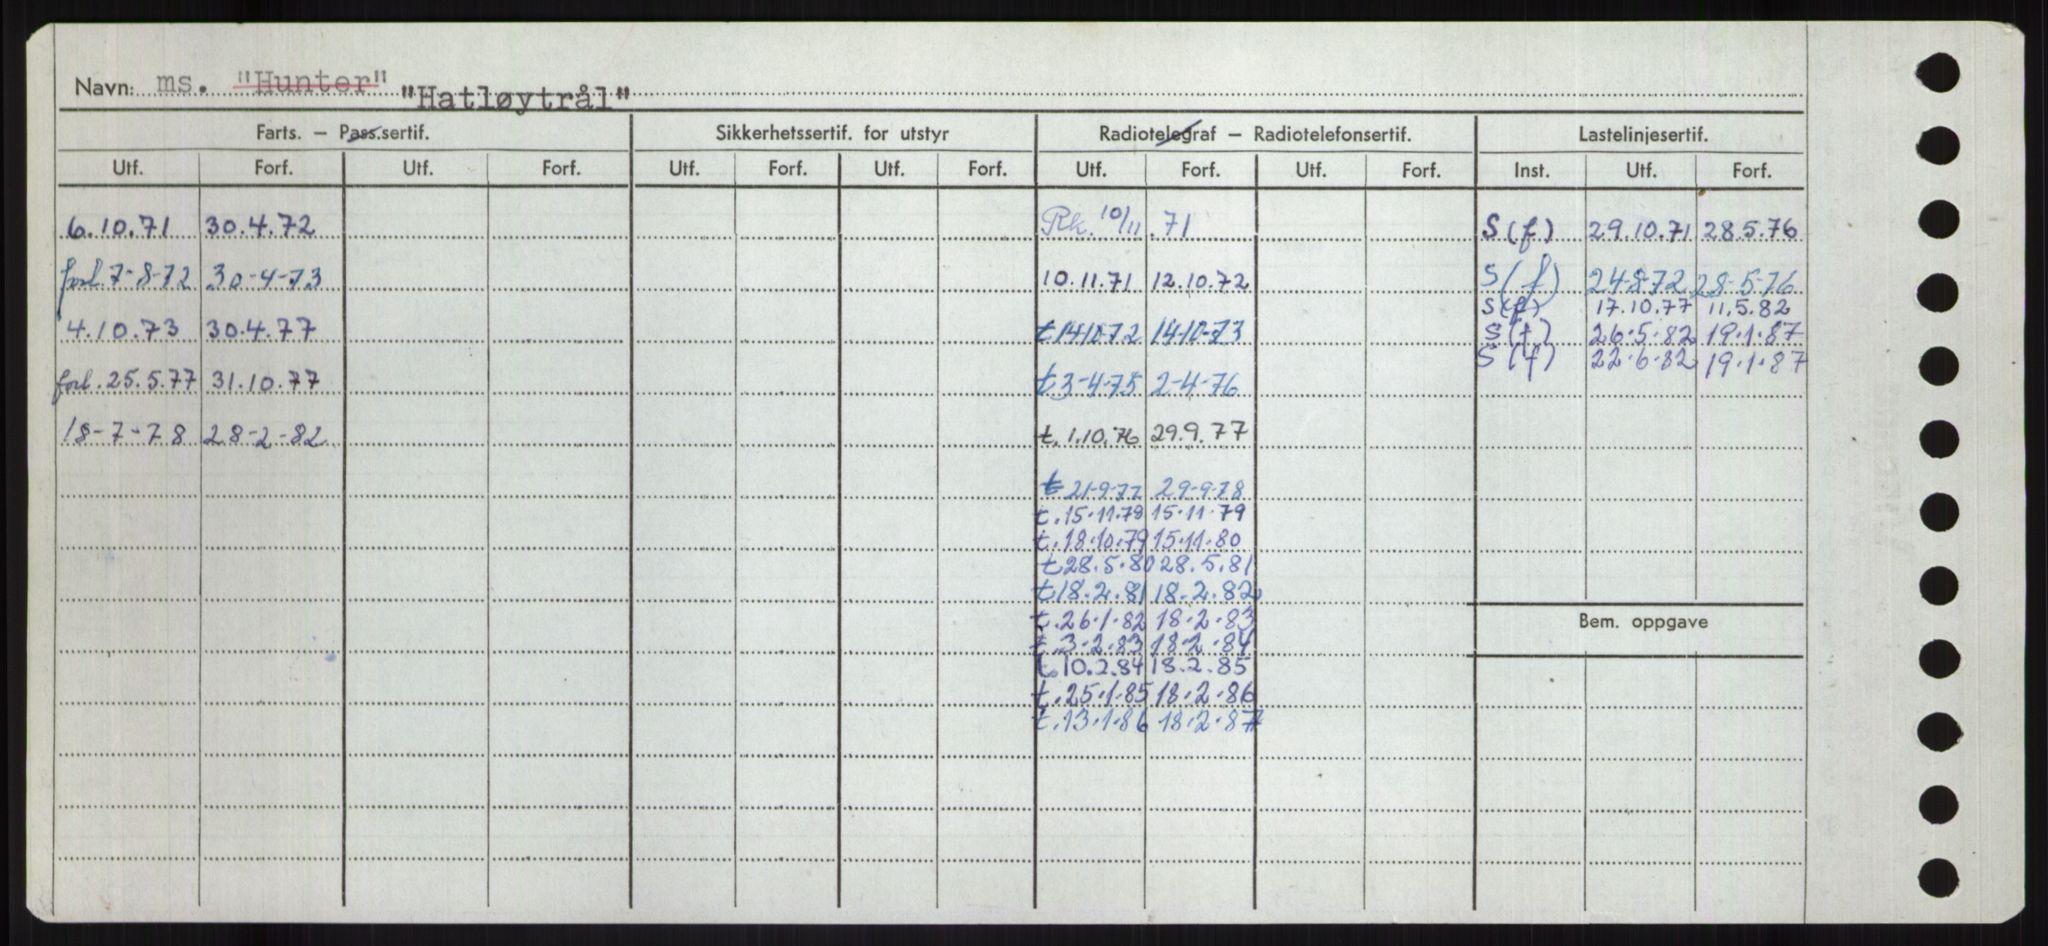 Navn: ms. "Hunter" "Hatløytrål"
Farts. – Pass.sertif. Sikkerhetssertif. for utstyr Radiotelegraf – Radiotelefonsertif. Lastelinjesertif.
Utf. Forf. Utf. Forf. Utf. Forf. Utf. Forf. Utf. Forf. Utf. Forf. Inst. Utf. Forf.
6.10.71 30.4.72 Rk. 10/11.71 S(f) 29.10.71 28.5.76
forl. 7-8-72 30-4-73 10.11.71 12.10.72 S(f) 24-8-72 28-5-76
S(f) 17.10.77 11.5.82
4.10.73 30.4.77 t 14-10-72 14-10-73 S(f) 26.5.82 19.1.87
S(f) 22.6.82 19.1.87
forl. 25.5.77 31.10.77 t 3-4-75 2-4-76
18-7-78 28-2-82 t. 1.10.76 29.9.77
t 21-9-77 29-9-78
t. 15.11.78 15.11.79
t. 18.10.79 15.11.80
t 28.5.80 28.5.81
t 18.2.81 18.2.82
t. 26.1.82 18.2.83
t. 3.2.83 18.2.84
Bem. oppgave
t. 10.2.84 18.2.85
t. 25.1.85 18.2.86
t. 13.1.86 18.2.87